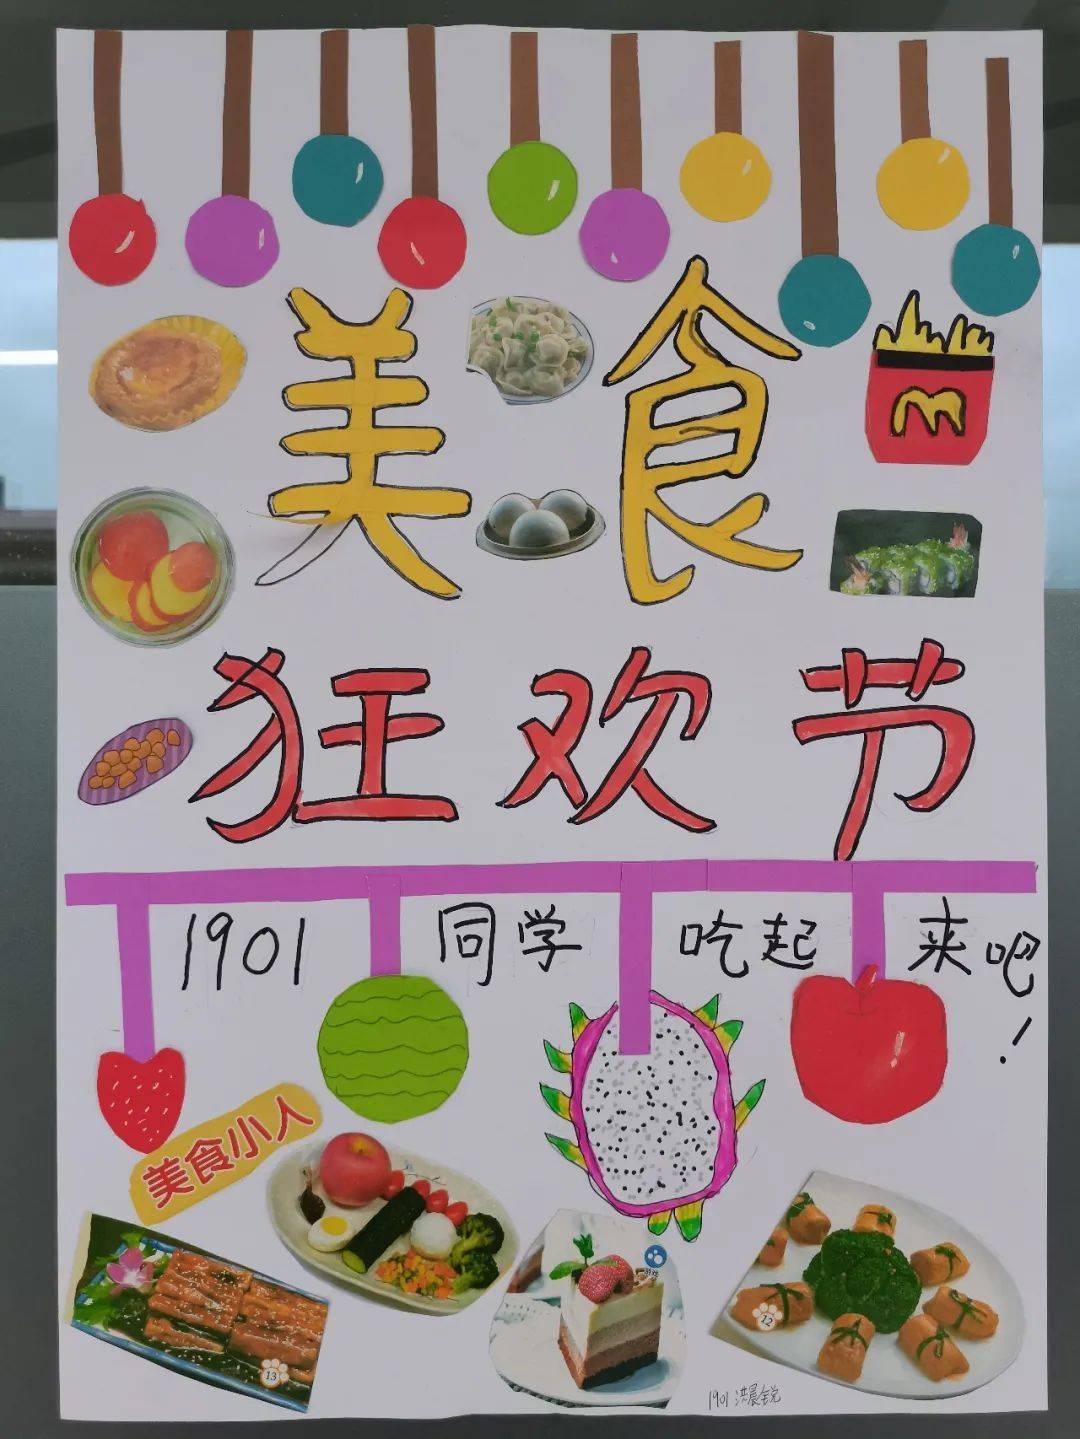 美食
狂欢节
1901 同学 吃起来吧!
美食小人
13
12
1901 洪晨锐